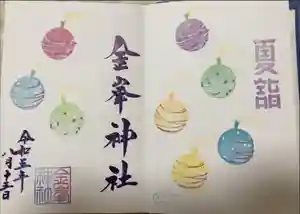 夏詣
金峯神社
令和三年
七月十三日
金峯
神社